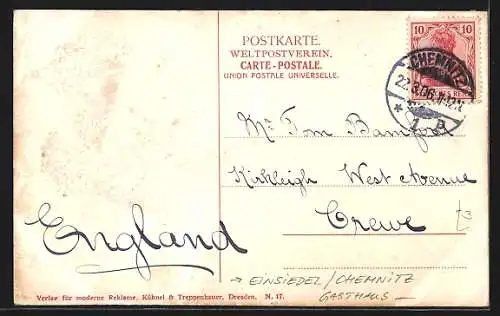 POSTKARTE.
WELTPOSTVEREIN.
CARTE-POSTALE.
UNION POSTALE UNIVERSELLE.
10 10
CHEMNITZ
22.3.06.
Mr Tom Bamford
Kirkleigh West Avenue
Crewe
England
→ EINSIEDEL/CHEMNITZ
GASTHAUS —
Verlag für moderne Reklame, Kühnel & Treppenhauer, Dresden. N. 17.